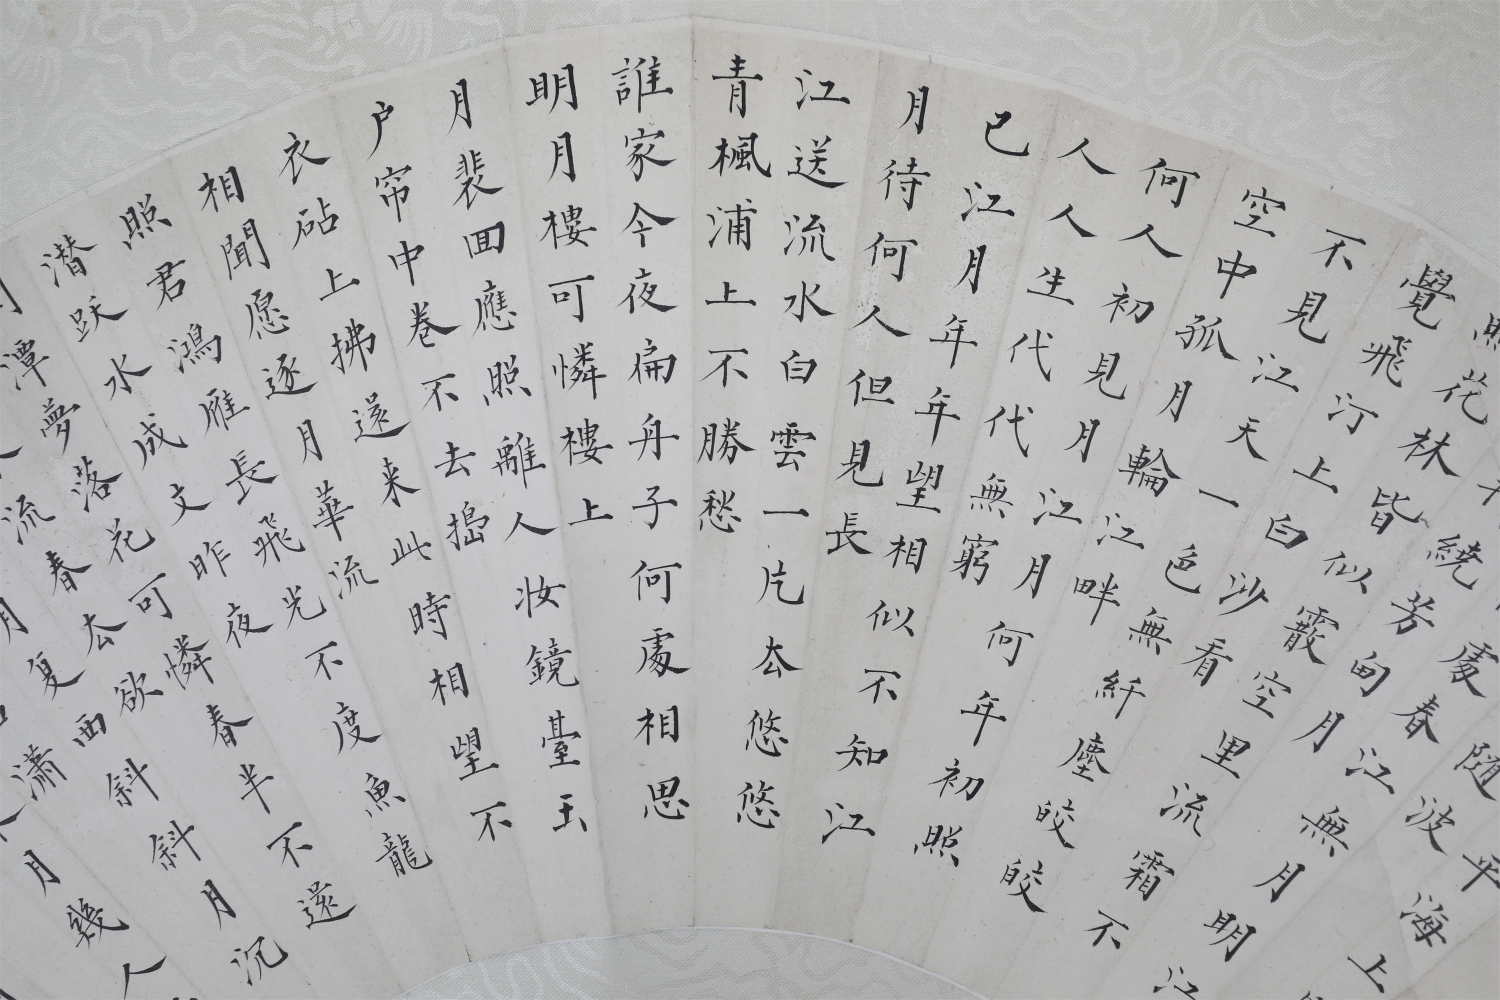 平海上
随波
處春江無月明江
繞芳甸月
照花林皆似霰空里流霜不
覺飛汀上白沙看
不見江天一色無纤塵皎皎
空中孤月輪江畔
何人初見月江月何年初照
人人生代代無窮
已江月年年望相似不知江
月待何人但見長
江送流水白雲一片去悠悠
青楓浦上不勝愁
誰家今夜扁舟子何處相思
明月樓可憐樓上
月裴回應照離人妝鏡臺玉
户帘中卷不去搗
衣砧上拂還来此時相望不
相聞愿逐月華流
照君鴻雁長飛光不度魚龍
潜跃水成文昨夜
潭夢落花可憐春半不還
流春去欲
月复西斜斜月沉
瀟
月幾人